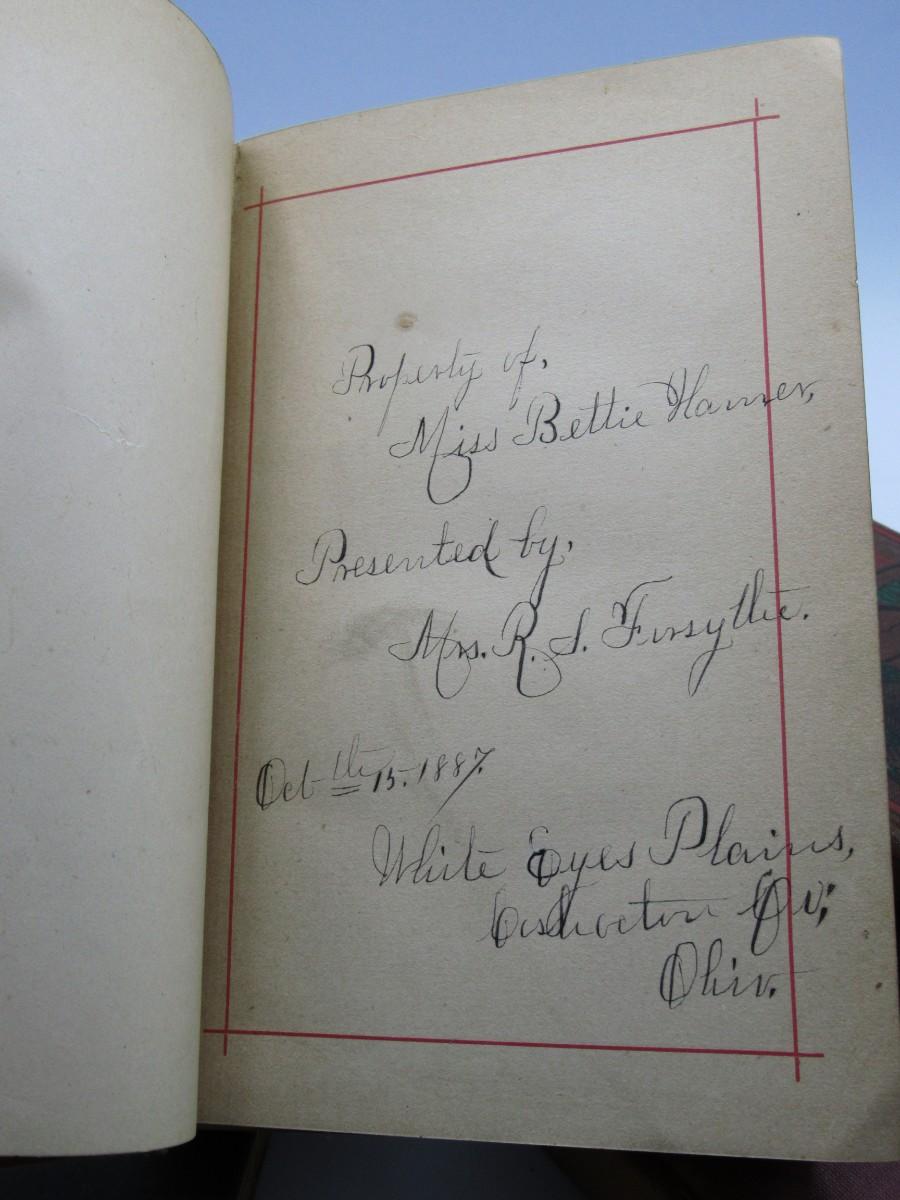 Property of,
Miss Bettie Hanner,
Presented by,
Mrs. R. S. Forsythe.
Oct th 15. 1887.
White Eyes Plains,
Coshocton Co;
Ohio.